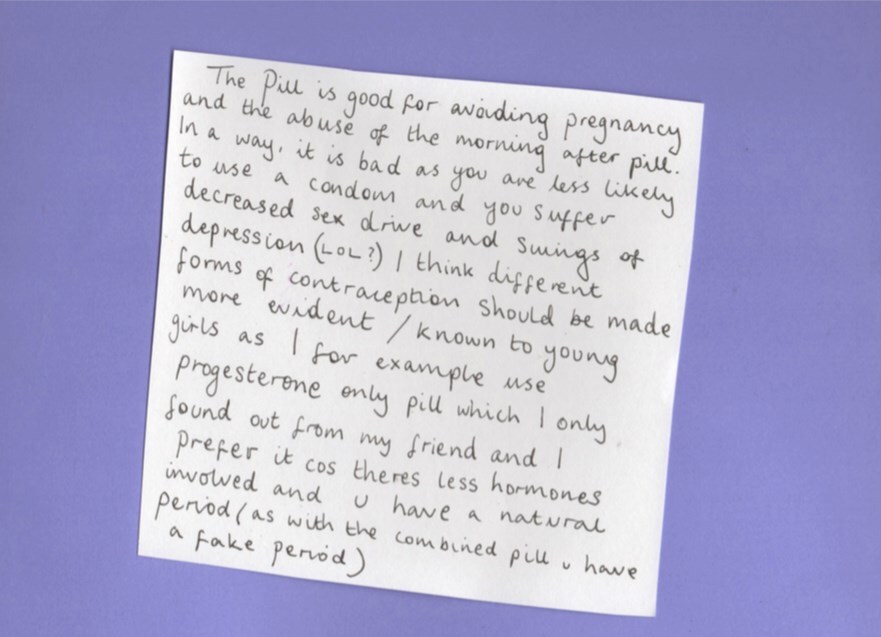 The Pill is good for avoiding pregnancy
and the abuse of the morning after pill.
In a way, it is bad as you are less likely
to use a condom and you suffer
decreased sex drive and swings of
depression (LOL?) I think different
forms of contraception should be made
more evident / known to young
girls as I for example use
progesterone only pill which I only
found out from my friend and I
prefer it cos theres less hormones
involved and u have a natural
period (as with the combined pill u have
a fake period)